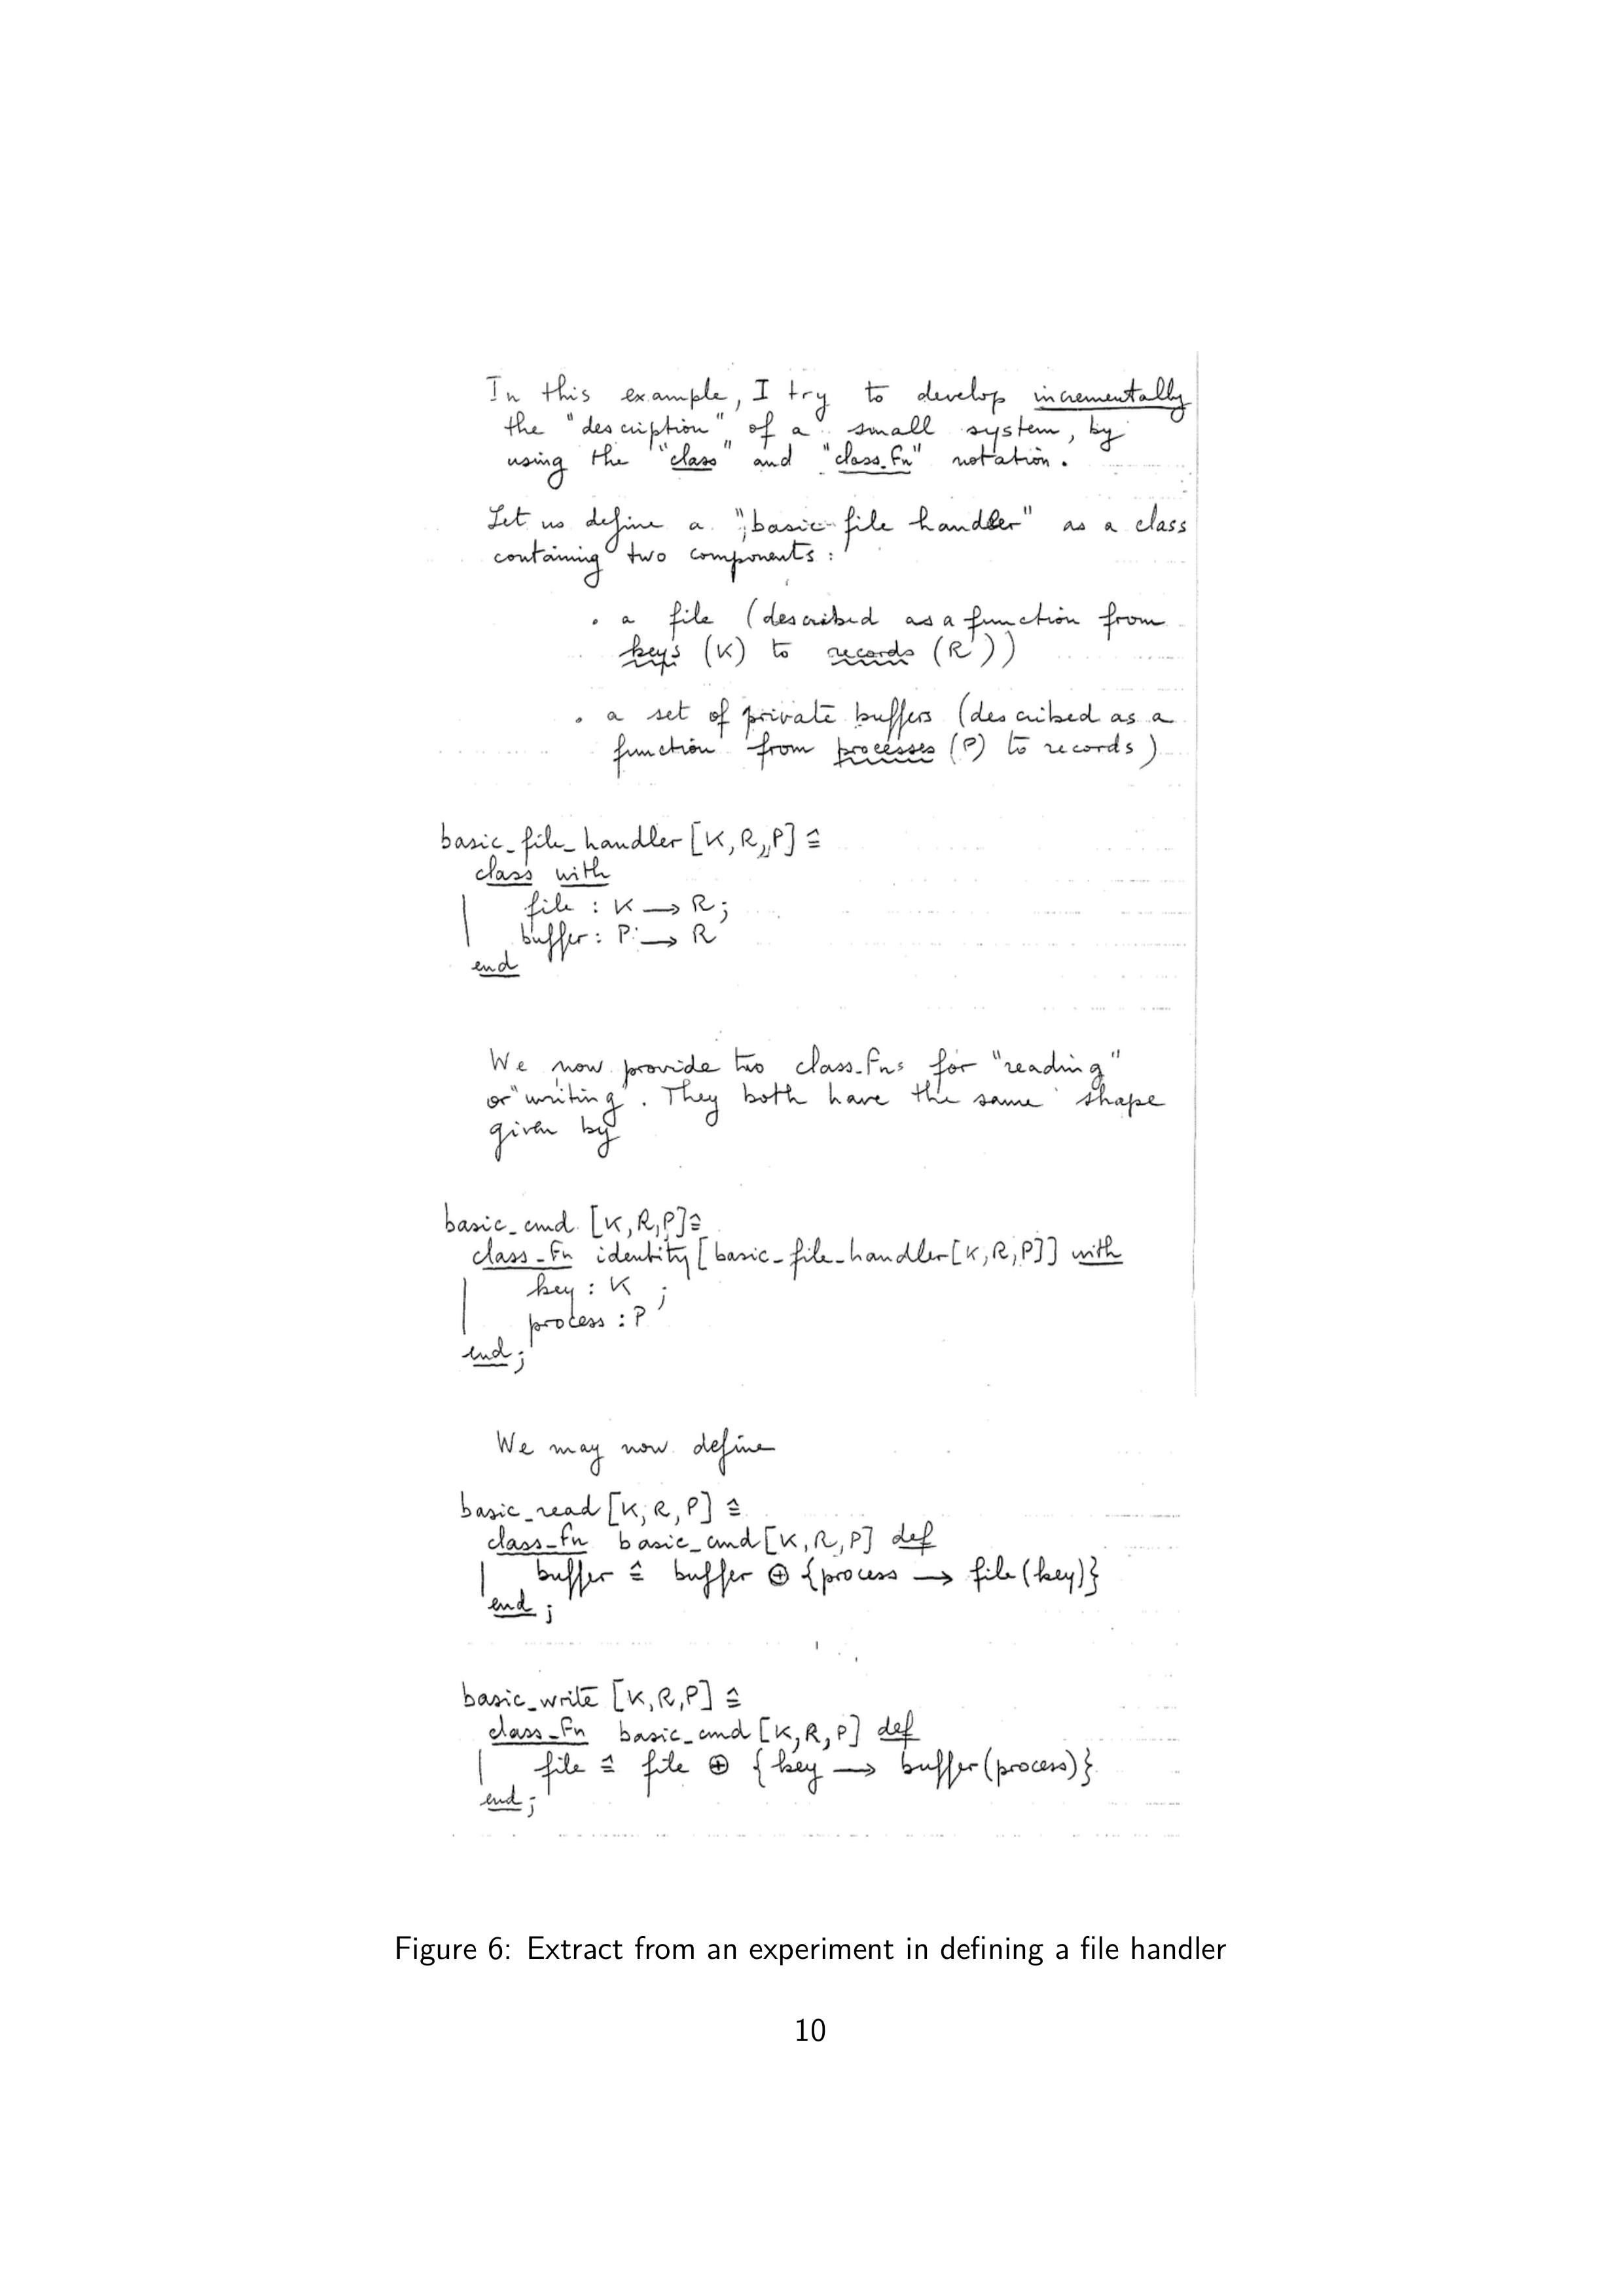 In this example, I try to develop incrementally
the "description" of a small system, by
using the "class" and "class_fn" notation.
Let us define a "basic file handler" as a class
containing two components:
• a file (described as a function from
keys (K) to records (R))
• a set of private buffers (described as a
function from processes (P) to records)
basic_file_handler [K, R, P] ≙
class with
file : K → R;
buffer : P → R
end
We now provide two class_fns for "reading"
or "writing". They both have the same shape
given by
basic_cmd [K, R, P] ≙
class_fn identity [basic_file_handler [K, R, P]] with
key : K ;
process : P
end;
We may now define
basic_read [K, R, P] ≙
class_fn basic_cmd [K, R, P] def
buffer ≙ buffer ⊕ {process → file(key)}
end;
basic_write [K, R, P] ≙
class_fn basic_cmd [K, R, P] def
file ≙ file ⊕ {key → buffer(process)}
end;
Figure 6: Extract from an experiment in defining a file handler
10